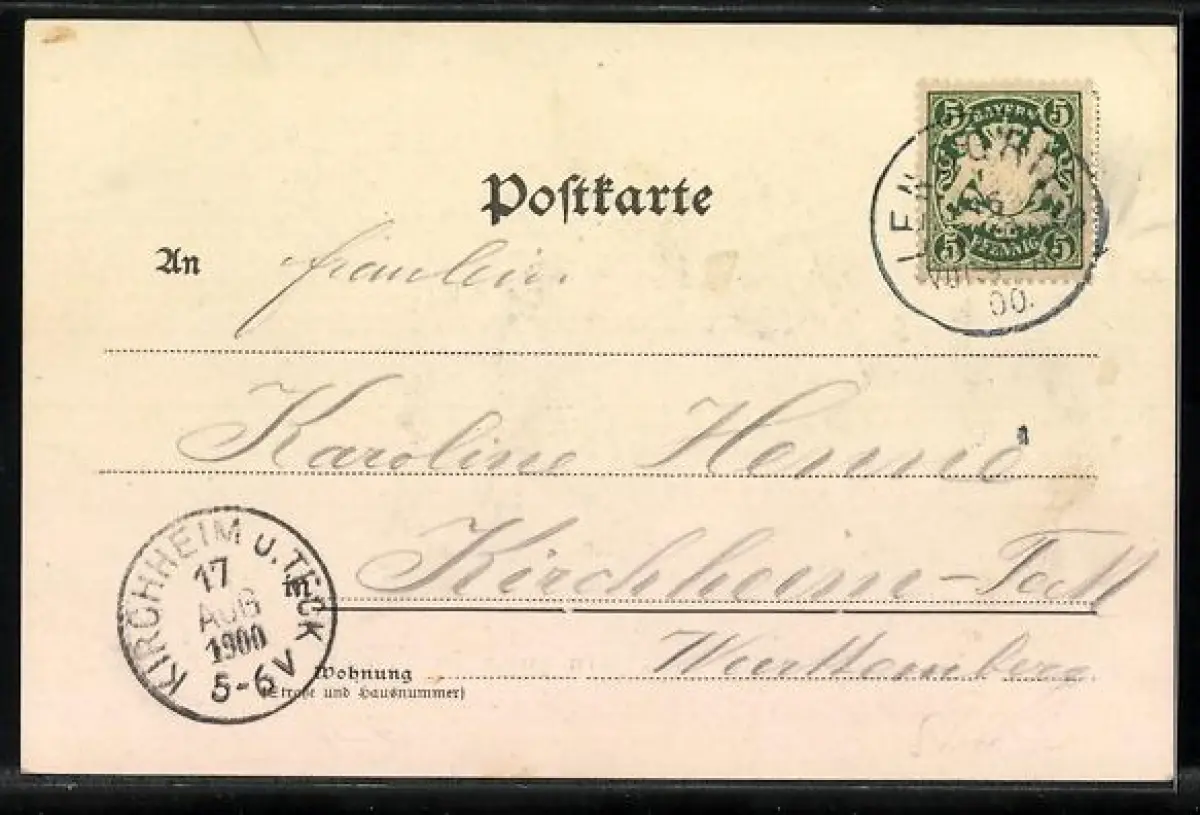 5 BAYERN 5
5 PFENNIG 5
00.
Postkarte
An Fräulein
Karoline Henne
Kirchheim-Teck
Württemberg
KIRCHHEIM U. TECK
17
AUG
1900
5-6V
Wohnung
(Straße und Hausnummer)